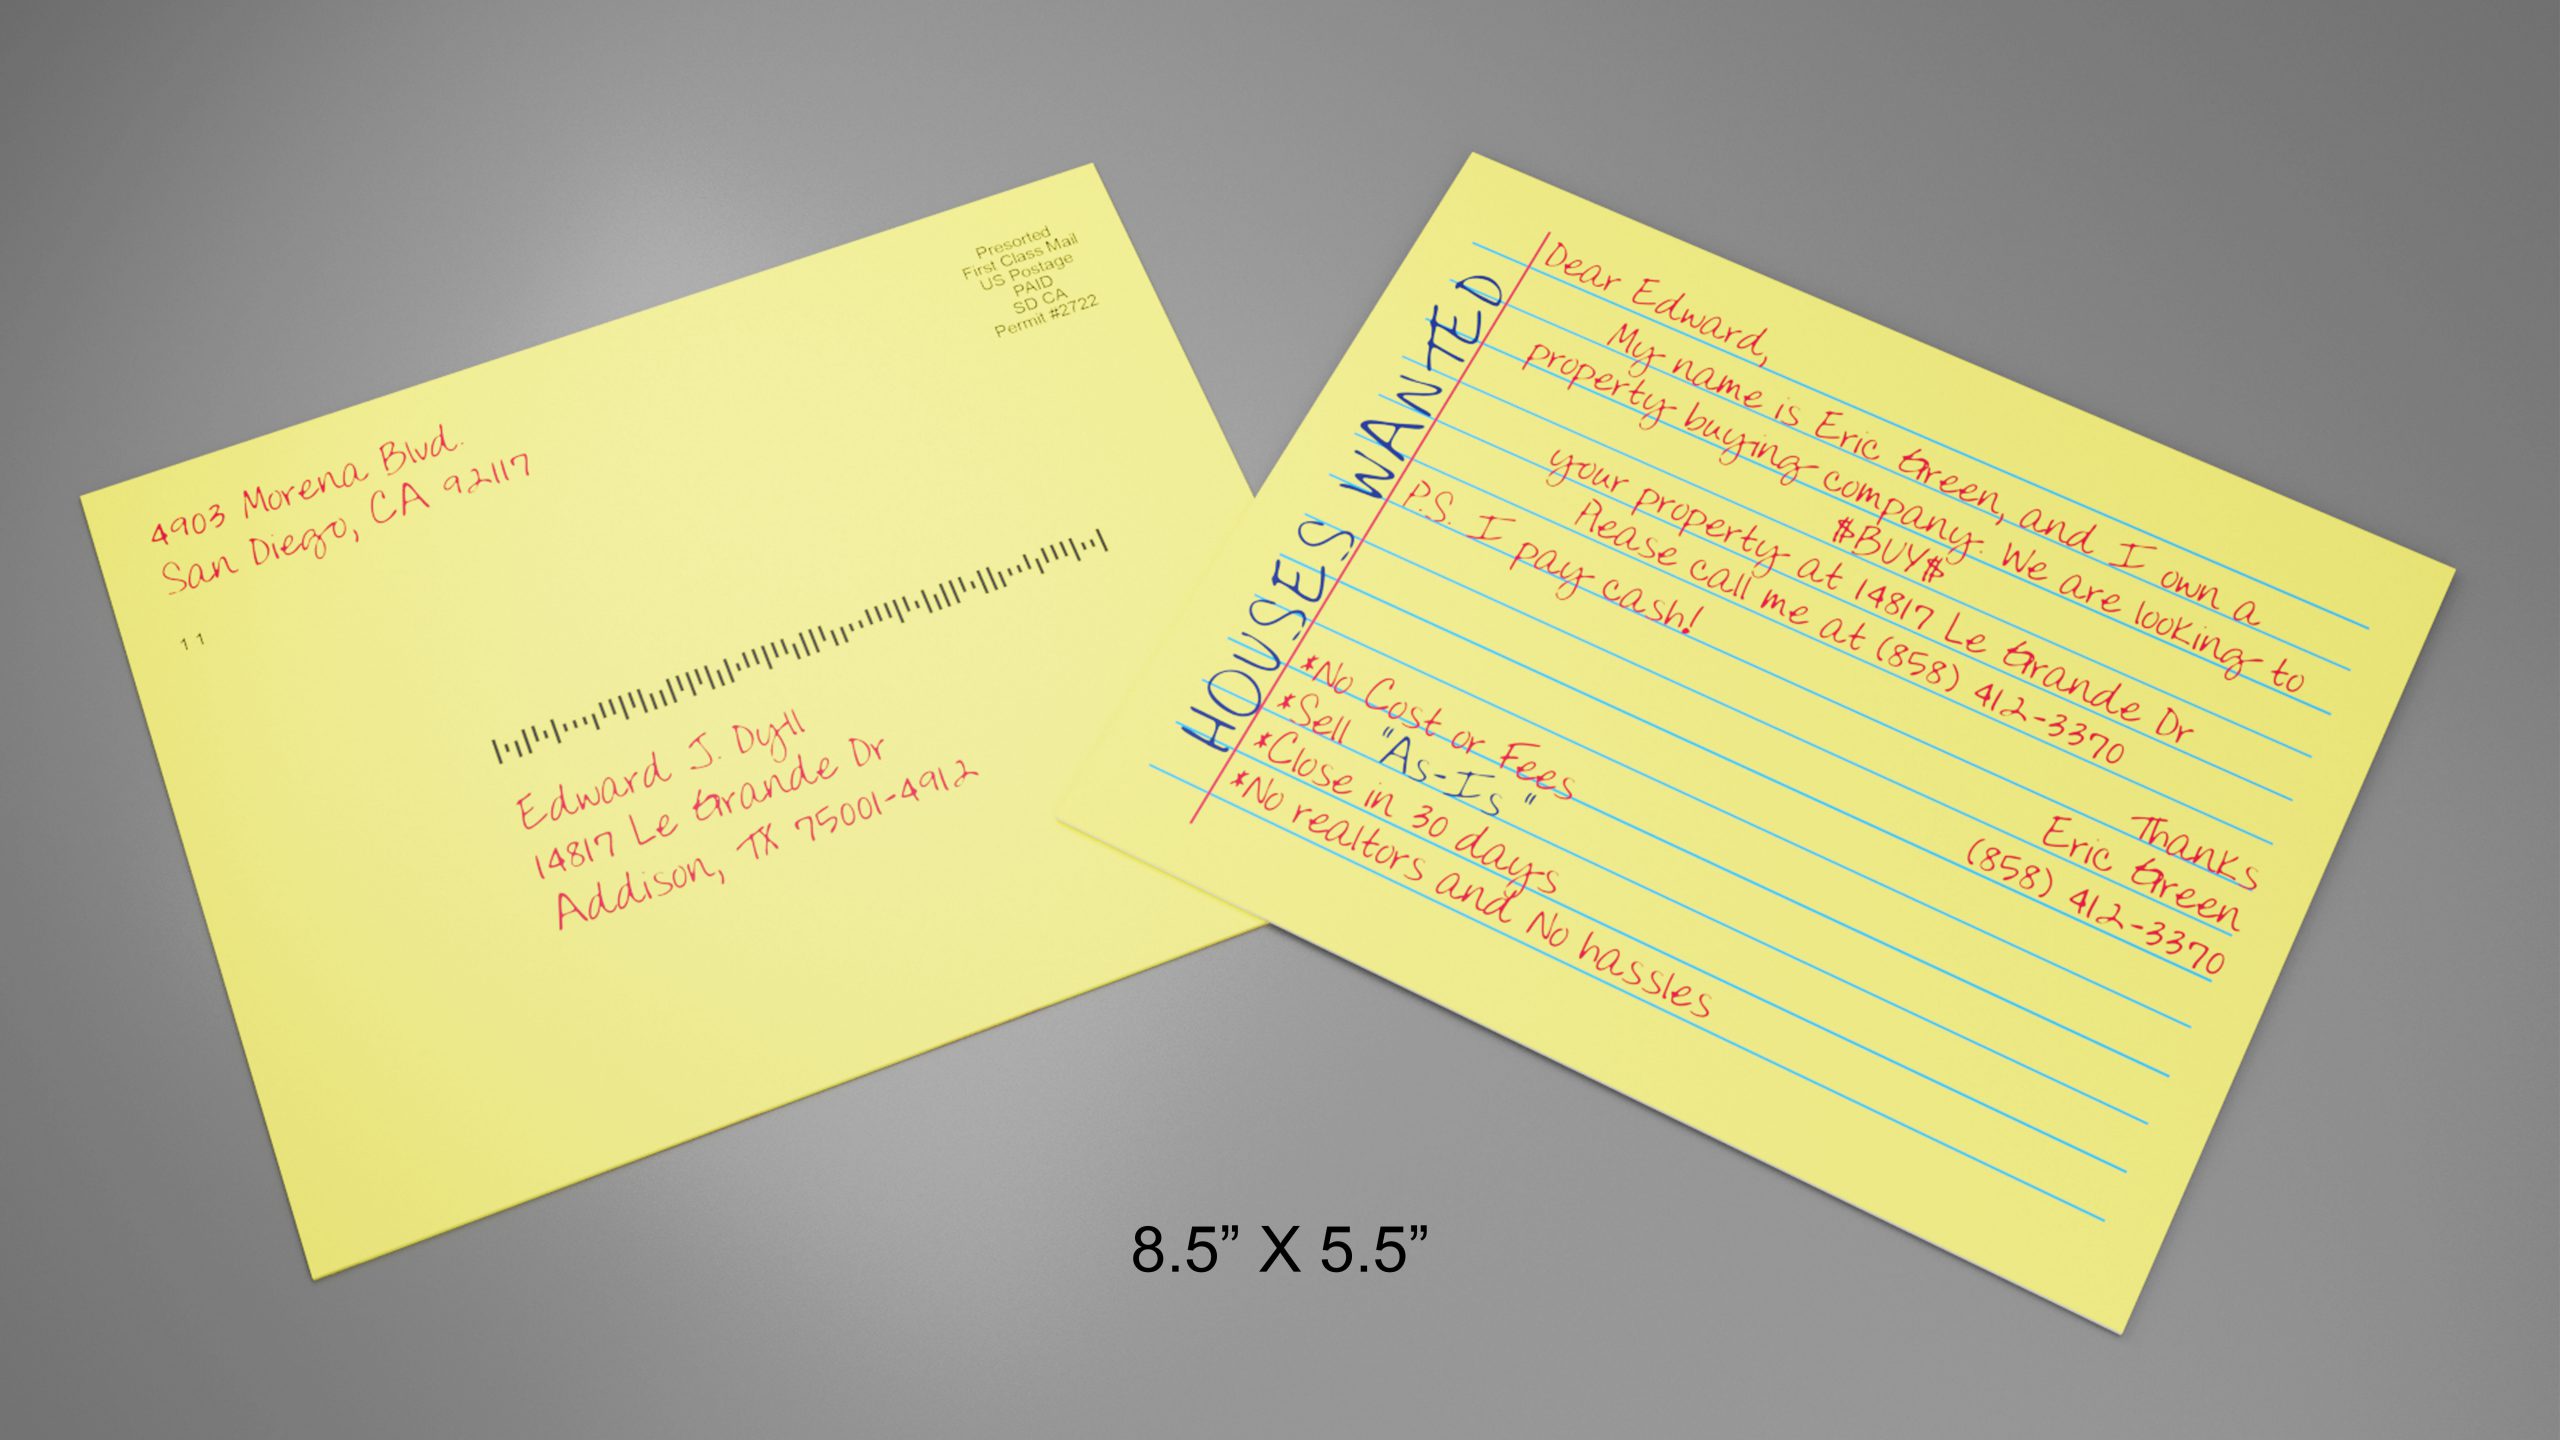 4903 Morena Blvd.
San Diego, CA 92117
Presorted
First Class Mail
US Postage
PAID
SD CA
Permit #2722
11
Edward J. Dyll
14817 Le Grande Dr
Addison, TX 75001-4912
HOUSES WANTED
Dear Edward,
My name is Eric Green, and I own a
property buying company. We are looking to
$BUY$
your property at 14817 Le Grande Dr
Please call me at (858) 412-3370
P.S. I pay cash!
Thanks
Eric Green
(858) 412-3370
*No Cost or Fees
*Sell "As-Is"
*Close in 30 days
*No realtors and No hassles
8.5” X 5.5”